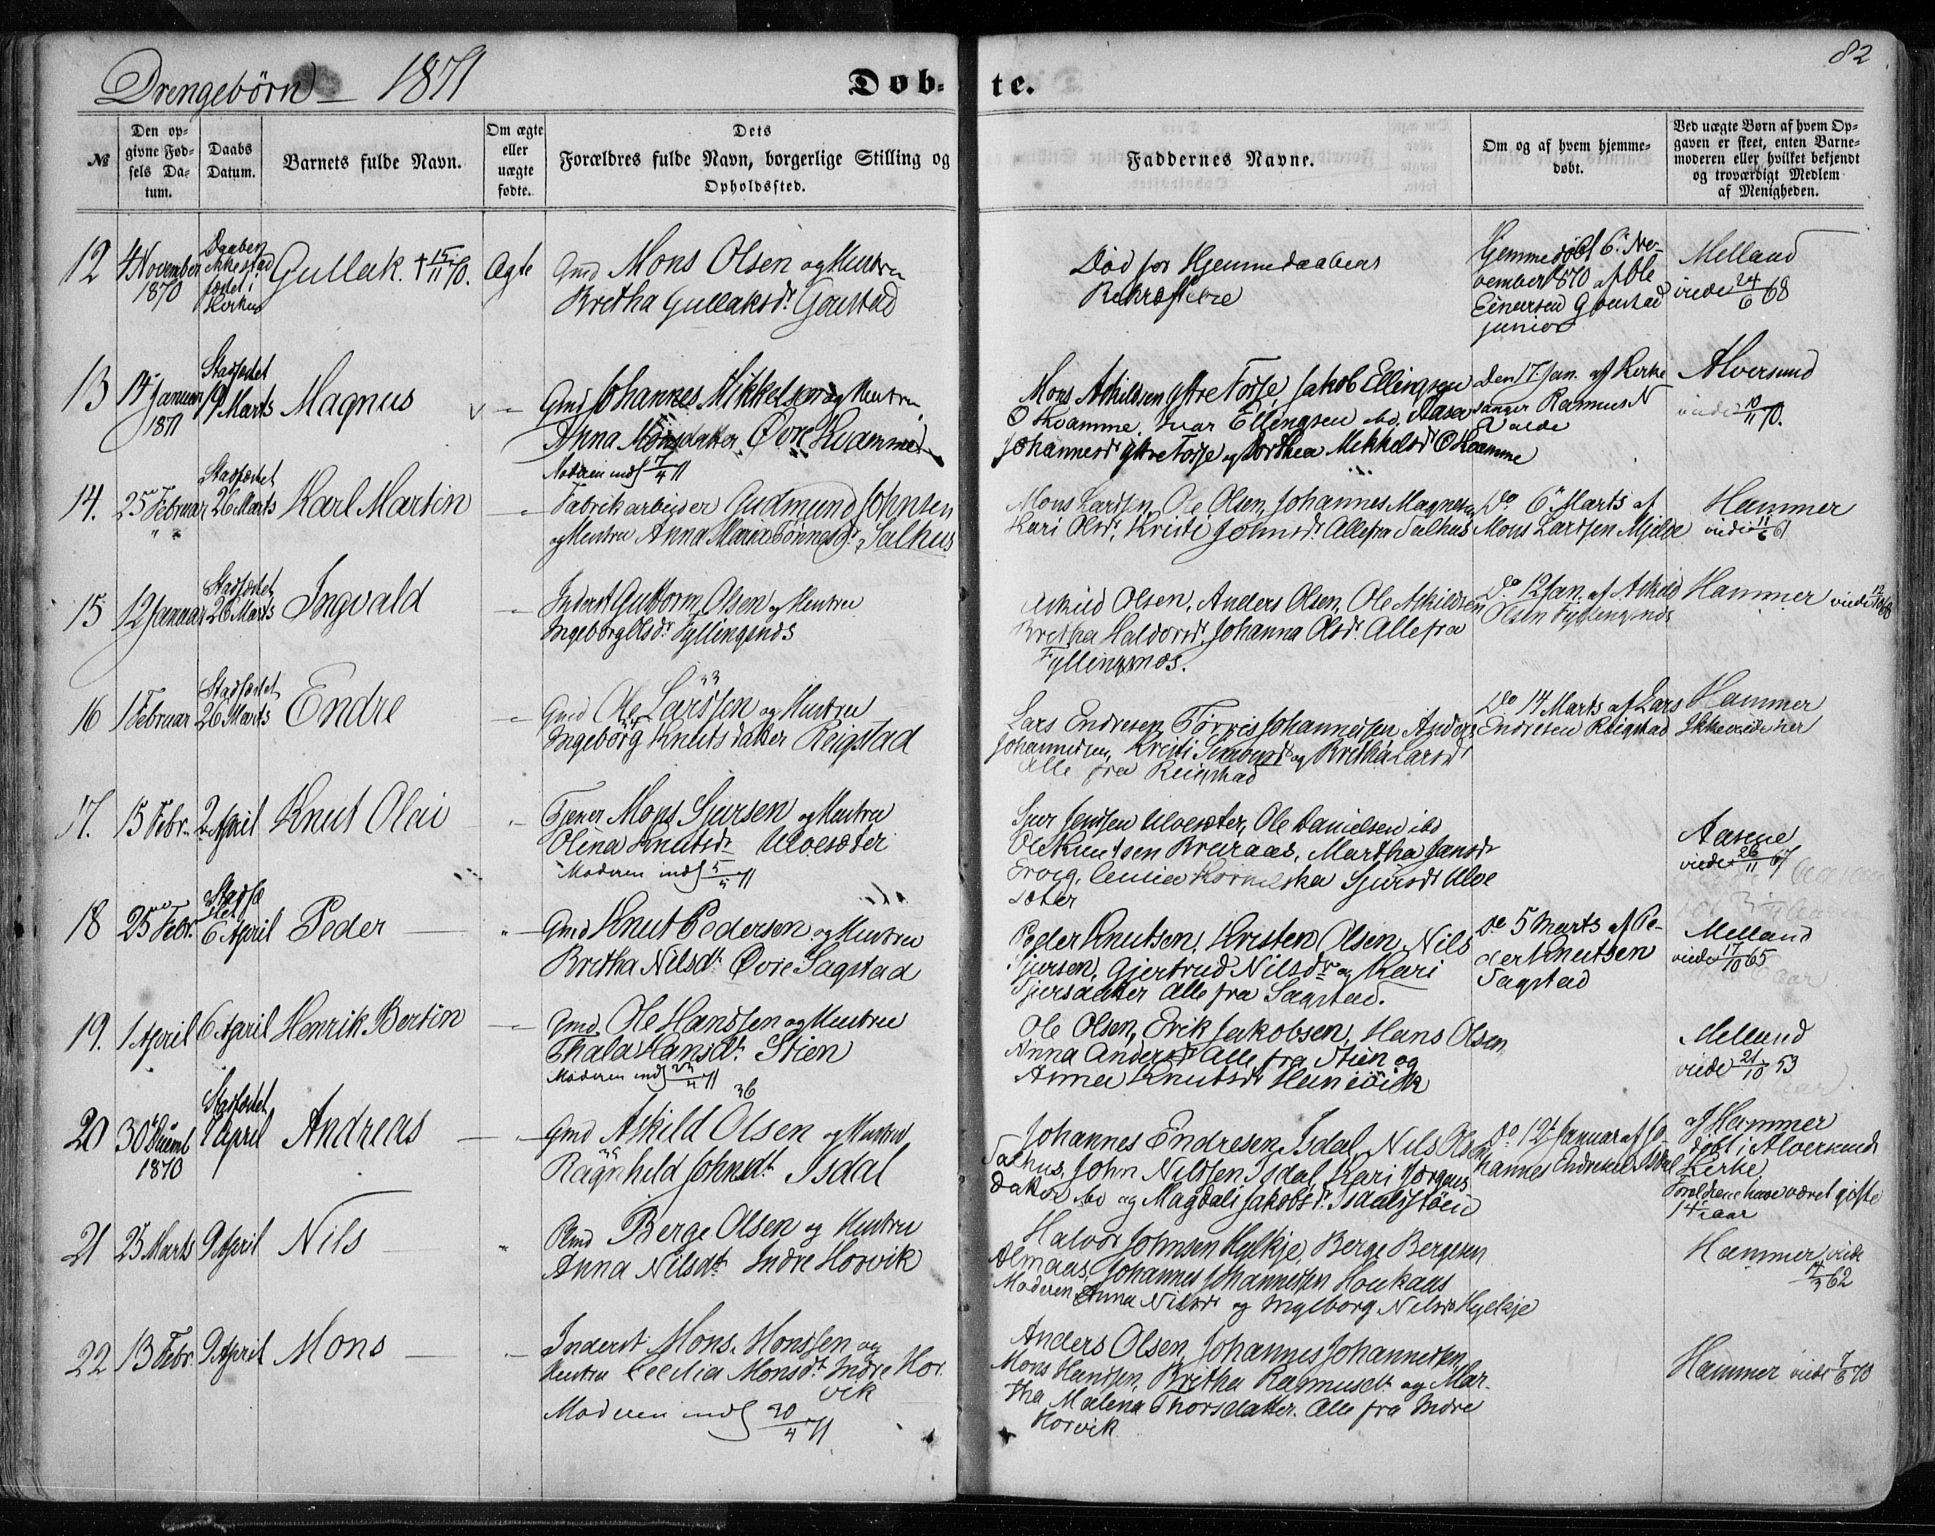 82
Drengebørn 1871
Døb-te.
№
Den op-
givne Fød-
sels Da-
tum.
Daabs
Datum.
Barnets fulde Navn.
Om ægte
eller
uægte
fødte.
Dets
Forældres fulde Navn, borgerlige Stilling og
Opholdssted.
Faddernes Navne.
Om og af hvem hjemme-
døbt.
Ved uægte Børn af hvem Op-
gaven er skeet, enten Barne-
moderen eller hvilket bekjendt
og troværdigt Medlem
af Menigheden.
12
4 November
1870
Daaben
ikke stad
fæstet i
Kirken
Gullak. † 15/11 70.
Ægte
Gmd Mons Olsen og Hustru
Bretha Gullaksdr
Død før Hjemmedaabens
Bekræftelse
Hjemmedøbt 6 No-
vember 1870 af Ole
Einersen
junior
Melland
viede 24/6 68
13
14 Januar
1871
Stadfæstet
19 Marts
Magnus
Gmd Johannes Mikkelsen og Hustru
Anna Monsdatter Øvre Kvamme
Moderen indl 17/4 71
Mons Askildsen, ystre Tosse, Jakob Ellingsen
Ø Kvamme, Ivar Ellingsen ibd, Aasa
Johannesdr ystre Tosse og Dorthea Mikkelsdr Ø Kvamme
Den 17 Jan. af Kirke
sanger Rasmus N
Valde
Alversund
viede 10/11 70.
14.
25 Februar
Stadfæstet
26 Marts
Karl Martin
Fabrikarbeider Gudmund Johnsen
og Hustru Anna Maria Tønnesdr, Salhus
Mons Larssen, Ole Olsen, Johannes Magnesen
Kari Olsdr, Kristi Johnsdr Alle fra Salhus
Do 6 Marts af
Mons Larssen Mjelde
Hammer
viede 11/6 61
15
12 Januar
Stadfæstet
26 Marts
Ingvald
Inderst Guttorm Olsen og Hustru
Ingeborg Olsdr Fyllingsnes
Askild Olsen, Anders Olsen, Ole Askildsen
Bretha Haldorsdr, Johanna Olsdr Alle fra
Fyllingsnæs.
Do 12 Jan. af Askild
Olsen Fyllingsnes
Hammer
16
1 Februar
Stadfæstet
26 Marts
Endre
Gmd Ole Larssen og Hustru
Ingeborg Knutsdatter Reigstad
Lars Endresen, Tørris Johannessen, Anders
Johannessen, Kristi og Bretha Larsdr
Alle fra Reigstad
Do 14 Marts af Lars
Endresen Reigstad
Hammer
Ikke viede her
17.
15 Febr.
2 April
Knut Olai
Tjener Mons Sjursen og Hustru
Olina Knutsdr Ulvesæter
Moderen indl 5/5 71
Sjur Jenssen Ulvesæter, Ole Danielsen ibd
Ole Knutsen Breraas, Martha Jansdr
Kornelska Sjursdr Ulve
sæter
Aasene
viede 26/11 67
18
25 Febr.
Stadfæ
stet
6 April
Peder
Gmd Knut Pedersen og Hustru
Bretha Nilsdr Øvre Sagstad
Peder Knutsen, Kristen Olsen, Nils
Sjursen, Gjertrud Nilsdr og Kari
Sjursdatter Alle fra Sagstad.
Do 5 Marts af Pe-
der Knutsen
Sagstad
Melland
viede 17/10 65
19.
1 April
6 April
Henrik Bertin
Gmd Ole Hanssen og Hustru
Thala Hansdr Stien
Moderen indl 23/4 71
Ole Olsen, Erik Jakobsen, Hans Olsen
Anna Andersdr Alle fra Stien og
Anna Knutsdr
Melland
viede 21/10 53
20
30 Decemb
1870
Stadfæstet
7 April
Andreas
36
Gmd Askild Olsen og Hustru
Ragnhild Johnsdr Isdal
Johannes Endresen Isdal, Nils Olsen
Salhus, John Nilssen Isdal, Kari Jørgens
datter ibd og Magdali Jakobsdr Isdalstøen
Do 12 Januar af Jo
hannes Endresen Isdal
af Hammer
døbt i Alversund
Kirke
Forældrene have været gifte
14 aar
21
25 Marts
9 April
Nils
Gmd Berge Olsen og Hustru
Anna Nilsdr Indre Horvik
Halvor Johnsen Hylkje, Berge Bergesen
Almaas, Johannes Johannessen Haukaas
Moderen Anna Nilsdr og Ingeborg Nilsdr Hylkje
Hammer viede
62
22
13 Febr.
9 April
Mons
Inderst Mons Monssen og
Hustru Cecilia Monsdr Indre Hor
vik
Moderen indl 20/4 71
Anders Olsen, Johannes Johannessen,
Mons Hanssen, Bretha Rasmusdr og Mar-
tha Malena Thorsdatter. Alle fra Indre
Horvik
Hammer viede 7/6 70